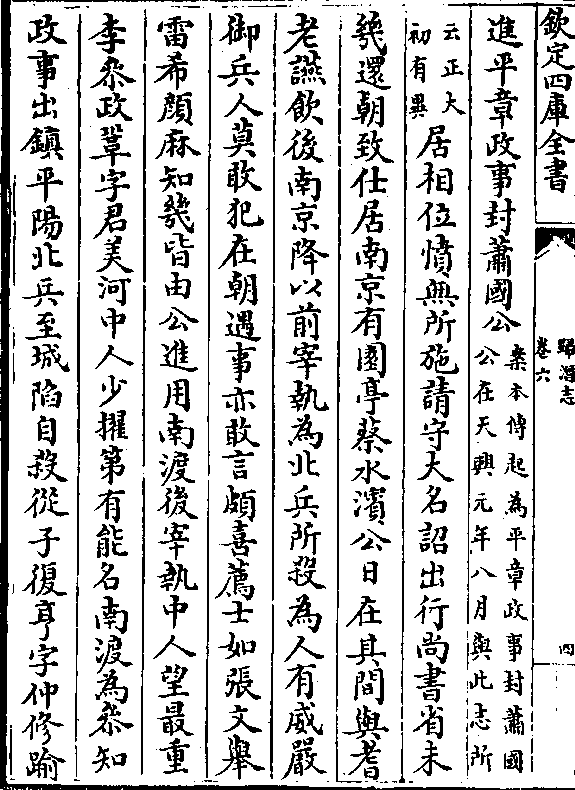 欽定四庫全書
歸潛志
卷六
四
進平章政事封蕭國公案本傳起為平章政事封蕭國
公在天興元年八月與此志所
云正大
初有異居相位憤無所施請守大名詔出行尚書省未
幾還朝致仕居南京有園亭蔡水濱公日在其間與耆
老讌飲後南京降以前宰執為北兵所殺為人有威嚴
御兵人莫敢犯在朝遇事亦敢言頗喜薦士如張文舉
雷希顔麻知幾皆由公進用南渡後宰執中人望最重
李叅政鞏字君美河中人少擢第有能名南渡為叅知
政事出鎮平陽北兵至城陷自殺從子復亨字仲修踰